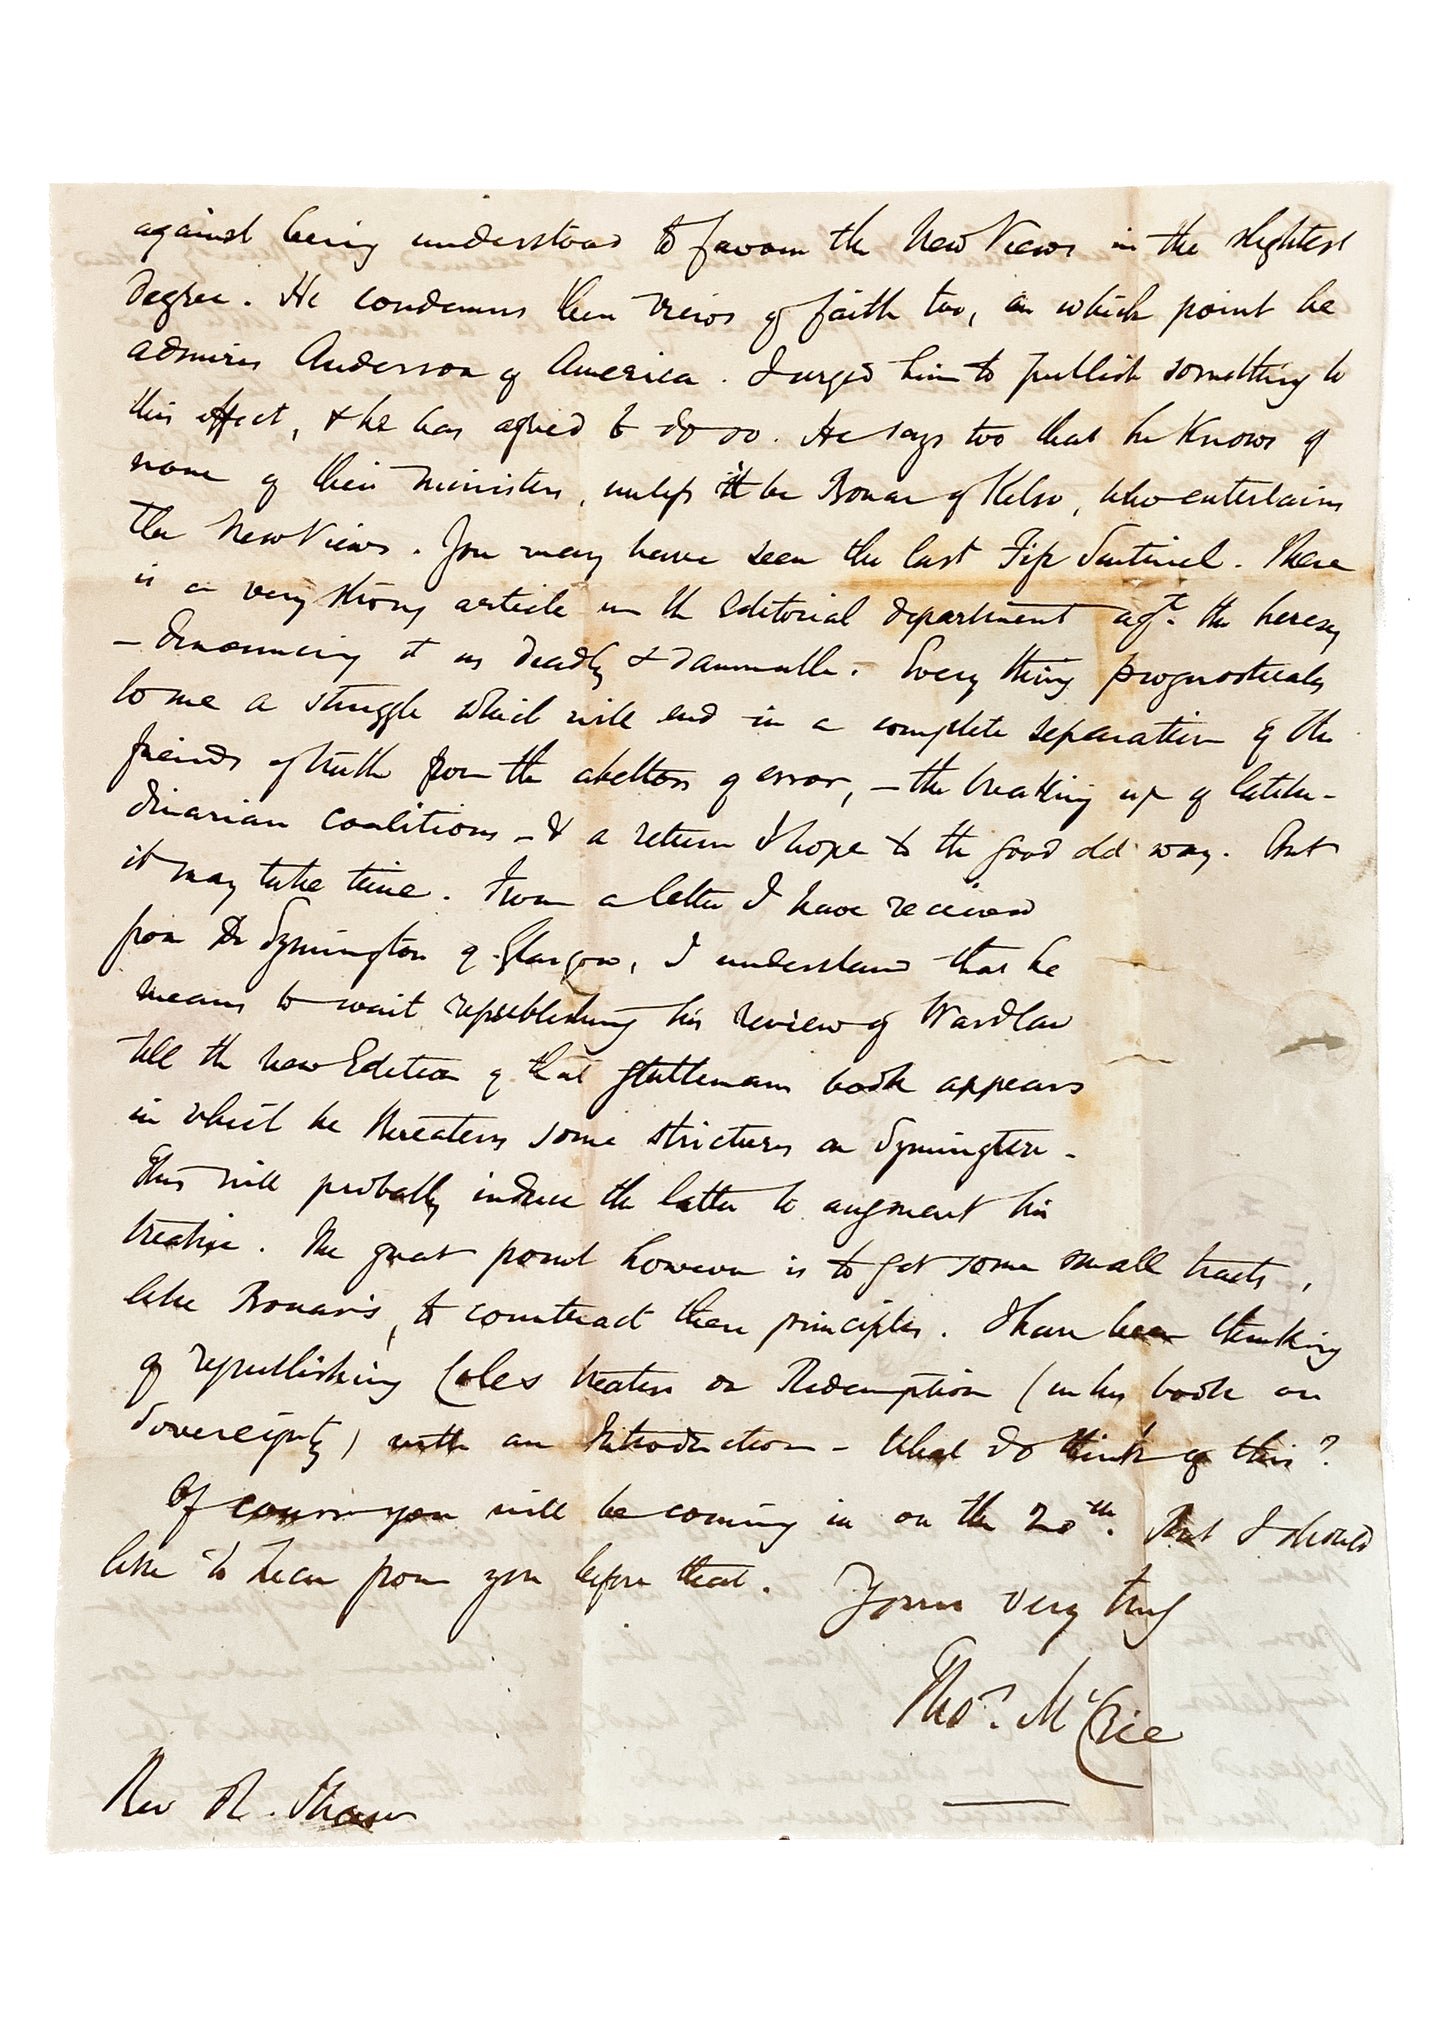 against being understood to favour the New Views in the slightest
degree. He condemns their views of faith too, on which point he
admires Anderson of America. I urged him to publish something to
this effect, & he has agreed to do so. He says too that he knows of
none of their ministers, unless it be Bonar of Kelso, who entertains
the New Views. You may have seen the last Fife Sentinel. There
is a very strong article in the Editorial department agt. the heresy
– denouncing it as deadly & damnable. Every thing prognosticates
to me a struggle which will end in a complete separation of the
friends of truth from the abettors of error, – the breaking up of latitu-
dinarian coalitions – & a return I hope to the good old way. But
it may take time. From a letter I have received
from Dr Symington of Glasgow, I understand that he
means to wait republishing his review of Wardlaw
till the new Edition of that gentlemans book appears
in which he threatens some strictures on Symington –
This will probably induce the latter to augment his
treatise. The great point however is to get some small tracts,
like Bonar's, to counteract these principles. I have been thinking
of republishing Coles treatise on Redemption (in his book on
Sovereignty) with an Introduction – What do think of this?
Of course you will be coming in on the 20th. But I should
like to hear from you before that.
Yours very truly
Thos. McCrie
Rev R. Shaw